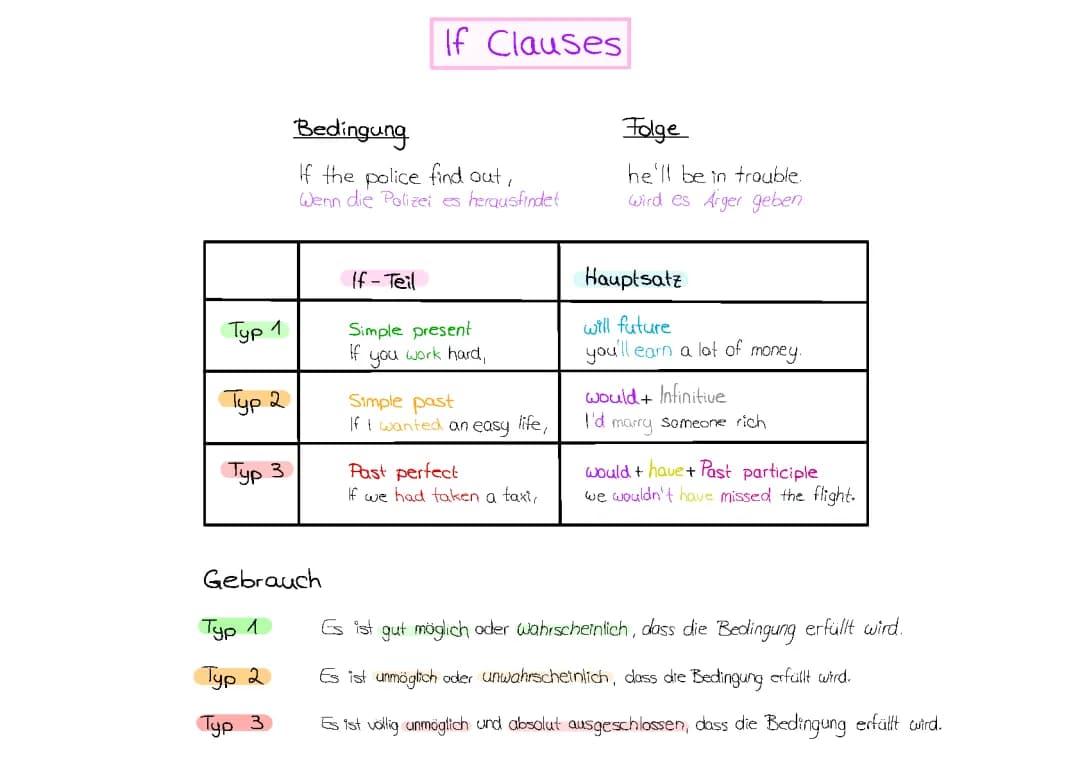 If Clauses
Bedingung
Folge
If the police find out,
he'll be in trouble.
Wenn die Polizei es herausfindet
wird es Ärger geben
If-Teil
Hauptsatz
Typ 1
Simple present
will future
If you work hard,
you'll earn a lot of money.
Typ 2
Simple past
would + Infinitive
If I wanted an easy life,
I'd marry someone rich
Typ 3
Past perfect
would + have + Past participle
If we had taken a taxi,
we wouldn't have missed the flight.
Gebrauch
Typ 1 Es ist gut möglich oder wahrscheinlich, dass die Bedingung erfüllt wird.
Typ 2 Es ist unmöglich oder unwahrscheinlich, dass die Bedingung erfüllt wird.
Typ 3 Es ist völlig unmöglich und absolut ausgeschlossen, dass die Bedingung erfällt wird.